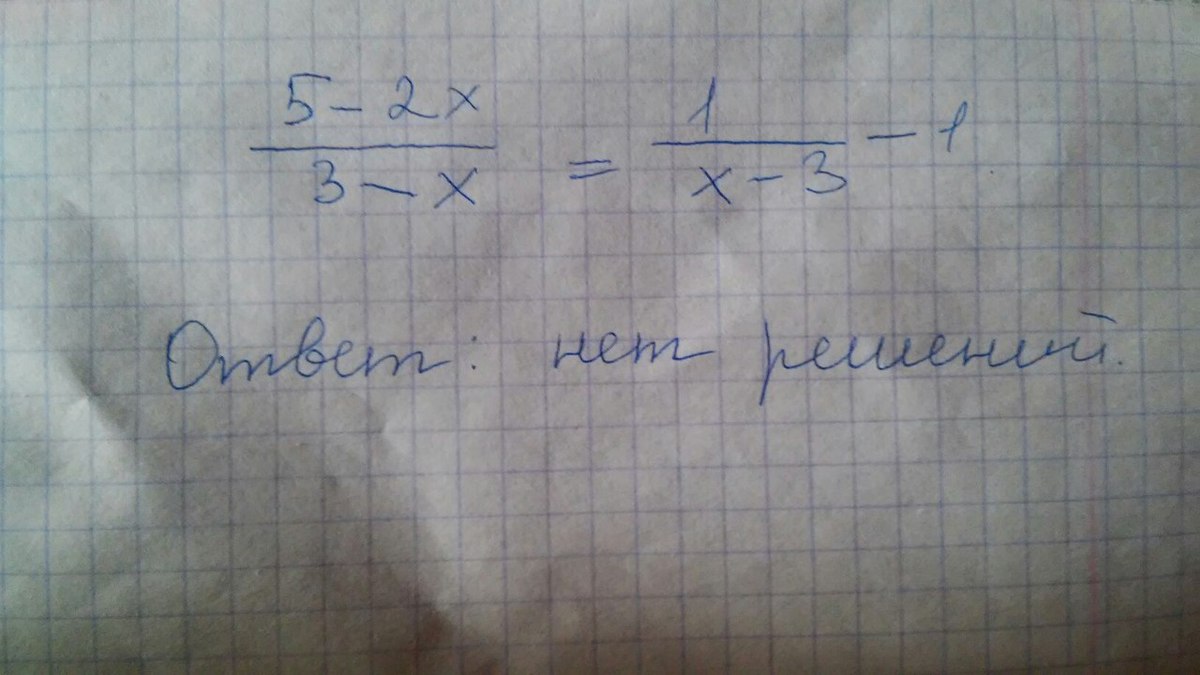 5 - 2x / 3 - x = 1 / x - 3 - 1
Ответ: нет решений.